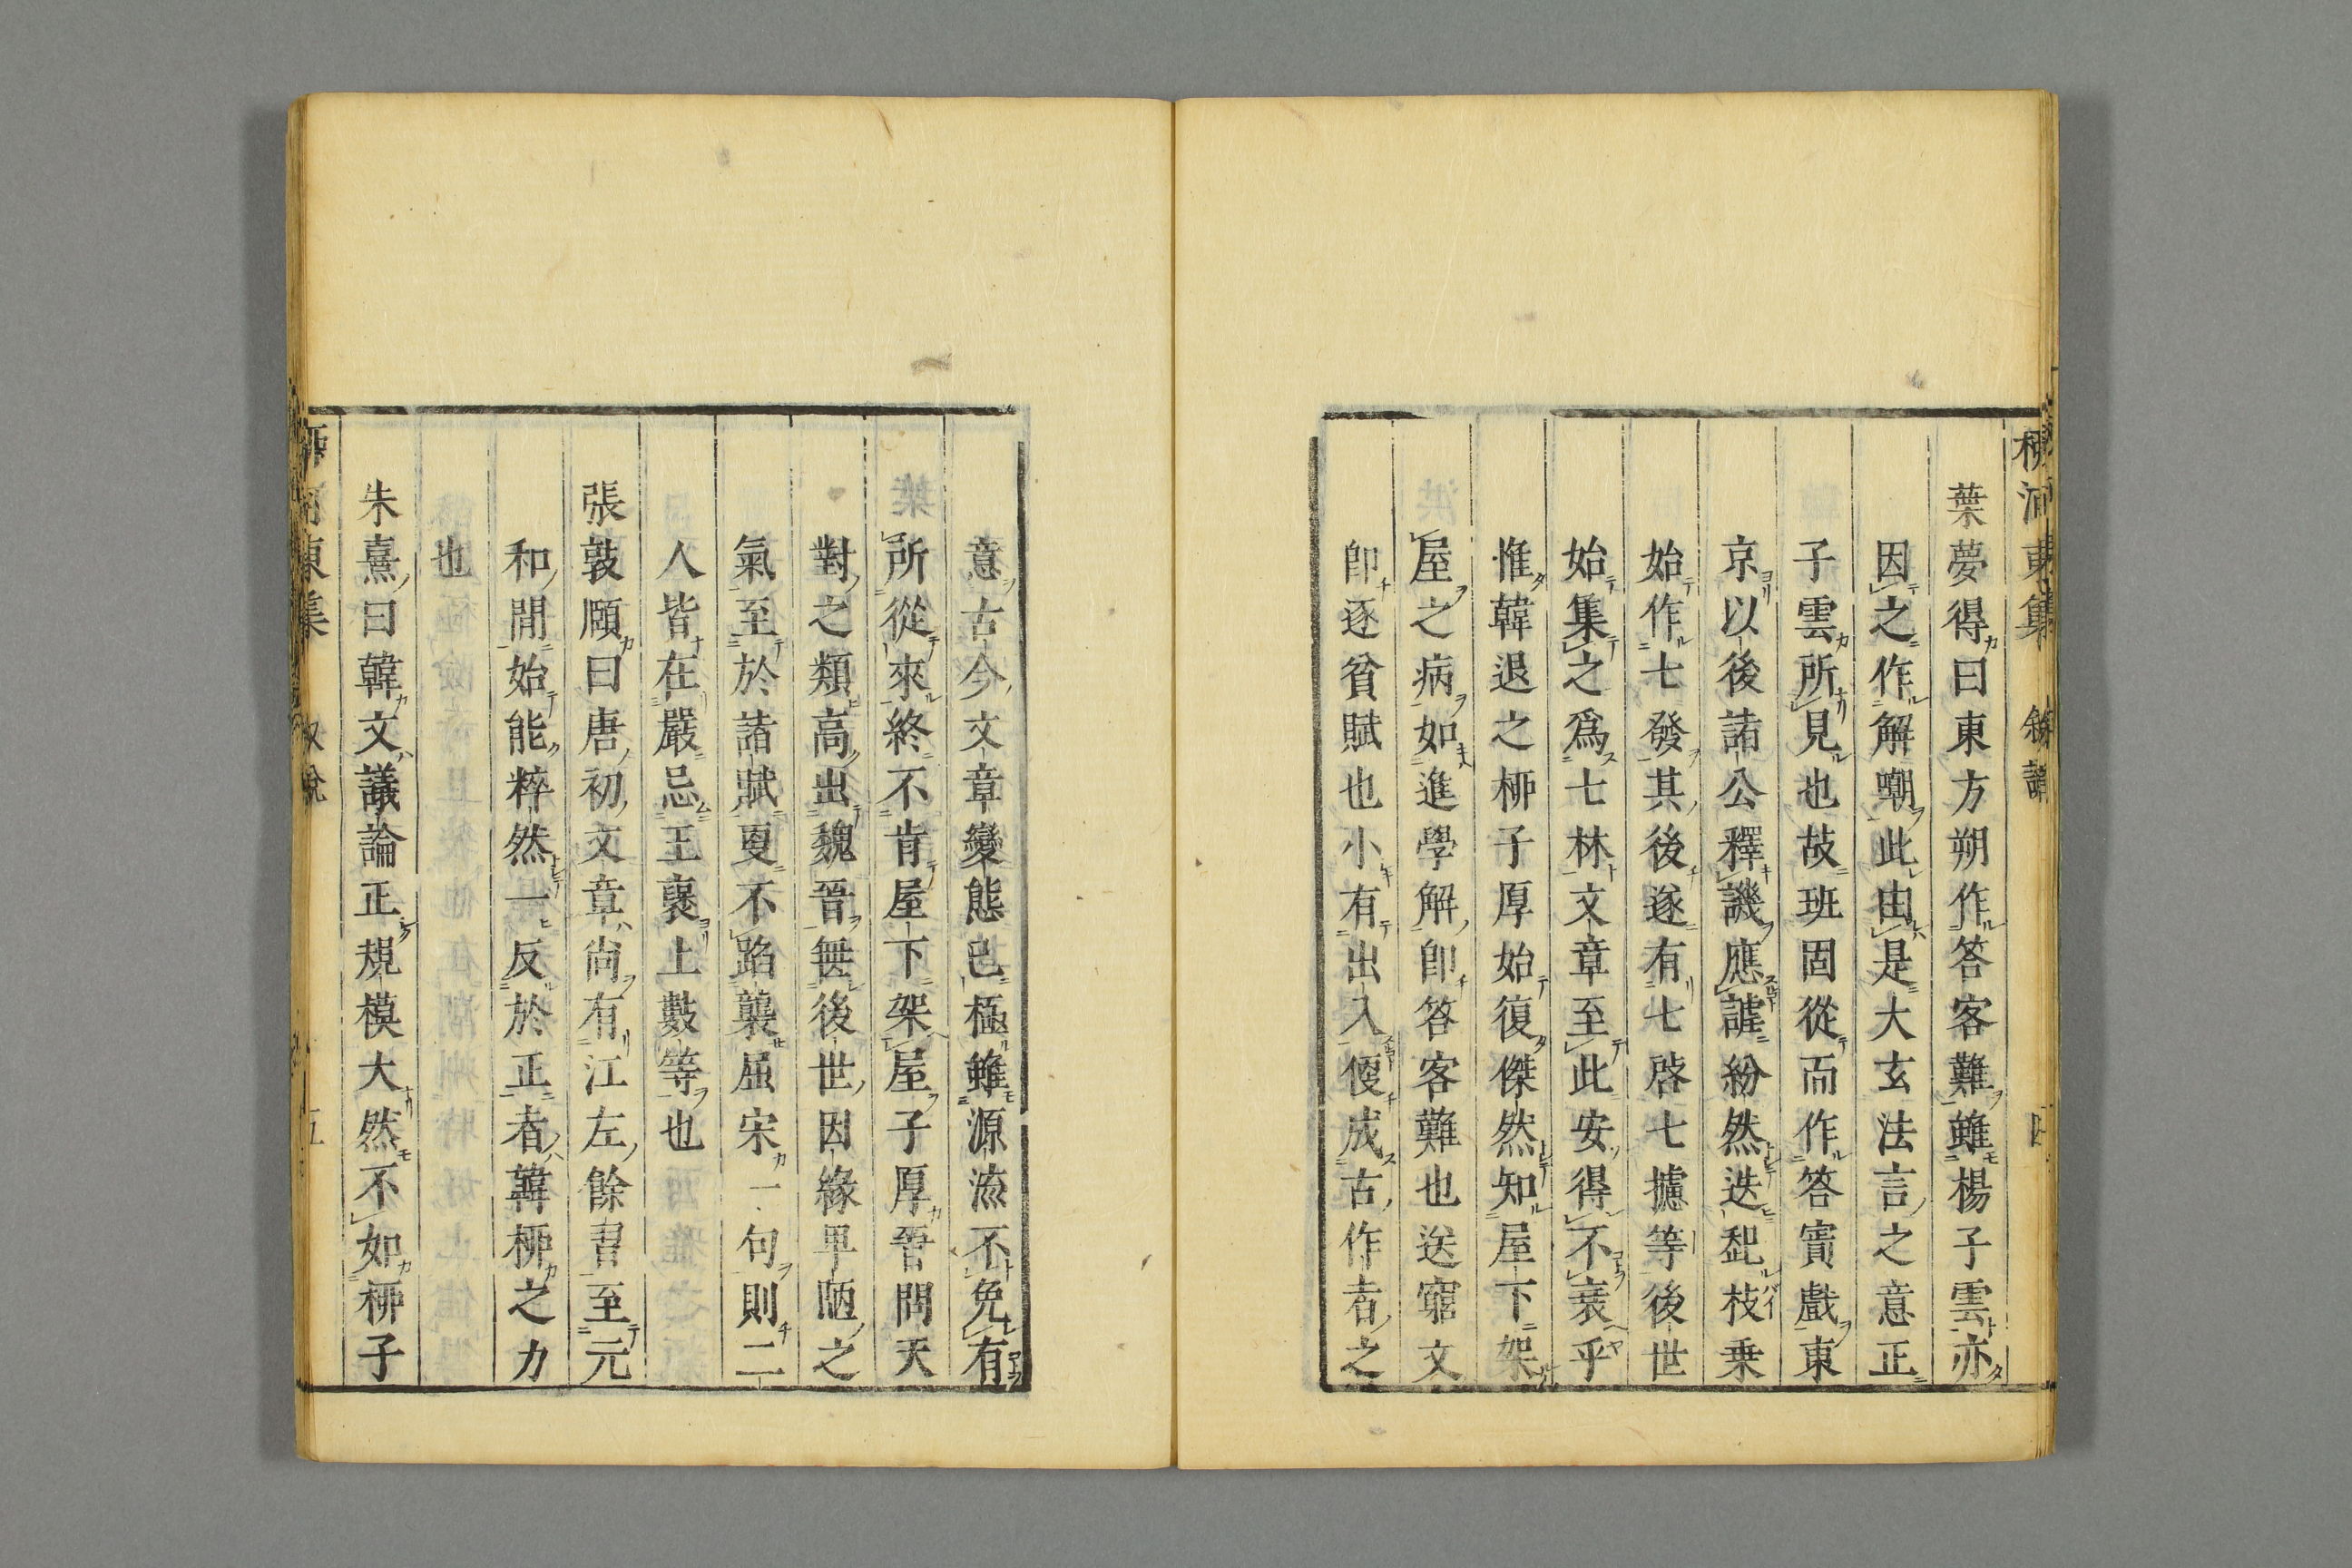 柳河東集 敘說 四
葉夢得曰東方朔作答客難雖楊子雲亦
因之作解嘲此由是大玄法言之意正
子雲所見也故班固從而作答賓戲東
京以後諸公釋譏應謔紛然迭起枝乗
始作七發其後遂有七啓七攄等後世
始集之爲七林文章至此安得不衰乎
惟韓退之柳子厚始復傑然知屋下架
屋之病如進學解卽答客難也送窮文
卽逐貧賦也小有出入便成古作者之
意古今文章變態已極雖源流不免有
所從來終不肯屋下架屋子厚晉問天
對之類高出魏晉無後世因緣卑陋之
氣至於諸賦更不蹈襲屈宋一句則二
人皆在嚴忌王襃上數等也
張敦頤曰唐初文章尚有江左餘習至元
和間始能粹然一反於正者韓柳之力
也
朱熹曰韓文議論正規模大然不如柳子
柳河東集 敘說 五